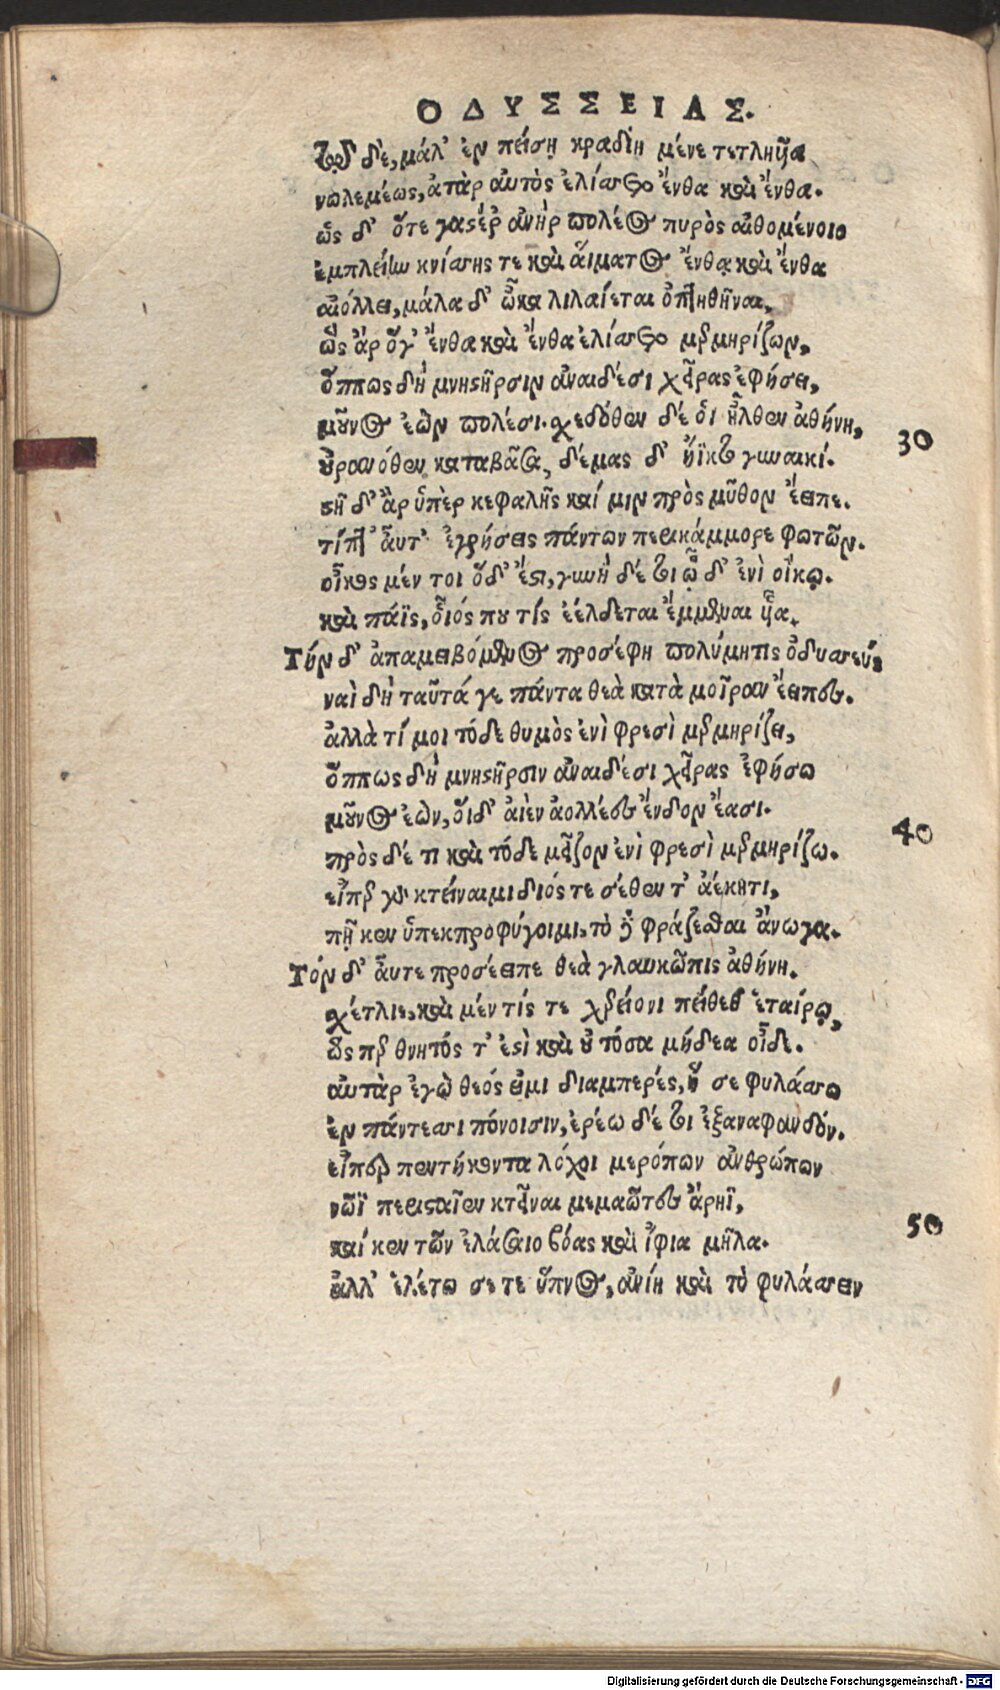 ΟΔΥΣΣΕΙΑΣ.
τῷ δὲ, μάλ' ἐν πείσῃ κραδίη μένε τετληῖα
νωλεμέως, ἀτὰρ αὐτὸς ἑλίσσετο ἔνθα καὶ ἔνθα.
ὡς δ' ὅτε γαστέρ' ἀνὴρ πολέος πυρὸς αἰθομένοιο
ἐμπλείην κνίσσης τε καὶ αἵματος ἔνθα καὶ ἔνθα
αἰόλλει, μάλα δ' ὦκα λιλαίεται ὀπτηθῆναι,
ὣς ἄρ ὅγ' ἔνθα καὶ ἔνθα ἑλίσσετο μερμηρίζων,
ὅππως δὴ μνηστῆρσιν ἀναιδέσι χεῖρας ἐφήσει,
μοῦνος ἐὼν πολέσι. σχεδόθεν δέ οἱ ἦλθεν ἀθήνη,
30
οὐρανόθεν καταβᾶσα, δέμας δ' ἤϊκτο γυναικί.
στῆ δ' ἂρ ὑπὲρ κεφαλῆς καί μιν πρὸς μῦθον ἔειπε.
τίπτ' αὖτ' ἐγρήσεις πάντων περικάμμορε φωτῶν.
οἶκος μέν τοι ὅδ' ἐστι, γυνὴ δέ τοι ᾧ δ' ἐνὶ οἴκῳ.
καὶ πάϊς, οἷός που τίς ἐέλδεται ἔμμεναι υἷα.
Τὴν δ' ἀπαμειβόμενος προσέφη πολύμητις ὀδυσσεύς
ναὶ δὴ ταῦτά γε πάντα θεὰ κατὰ μοῖραν ἔειπες.
ἀλλὰ τί μοι τόδε θυμὸς ἐνὶ φρεσὶ μερμηρίζει,
ὅππως δὴ μνηστῆρσιν ἀναιδέσι χεῖρας ἐφήσω
μοῦνος ἐὼν, οἵδ' αἰὲν ἀολλέες ἔνδον ἔασι.
40
πρὸς δέ τι καὶ τόδε μεῖζον ἐνὶ φρεσὶ μερμηρίζω.
εἴπερ γὰρ κτείναιμι διός τε σέθεν τ' ἀέκητι,
πῇ κεν ὑπεκπροφύγοιμι, τό σε φράζεσθαι ἄνωγα.
Τὸν δ' αὖτε προσέειπε θεὰ γλαυκῶπις ἀθήνη.
σχέτλιε, καὶ μέν τίς τε χερείονι πείθεθ' ἑταίρῳ,
ὅς περ θνητός τ' ἐστὶ καὶ οὐ τόσα μήδεα οἶδε.
αὐτὰρ ἐγὼ θεός εἰμι διαμπερές, ἥ σε φυλάσσω
ἐν πάντεσσι πόνοισιν, ἐρέω δέ τοι ἐξαναφανδόν.
εἴπερ πεντήκοντα λόχοι μερόπων ἀνθρώπων
νῶϊ περισταῖεν κτεῖναι μεμαῶτες ἄρηϊ,
50
καί κεν τῶν ἐλάσαιο βόας καὶ ἴφια μῆλα.
ἀλλ' ἑλέτω σε τε ὕπνος, ἀνίη καὶ τὸ φυλάσσειν
Digitalisierung gefördert durch die Deutsche Forschungsgemeinschaft - DFG